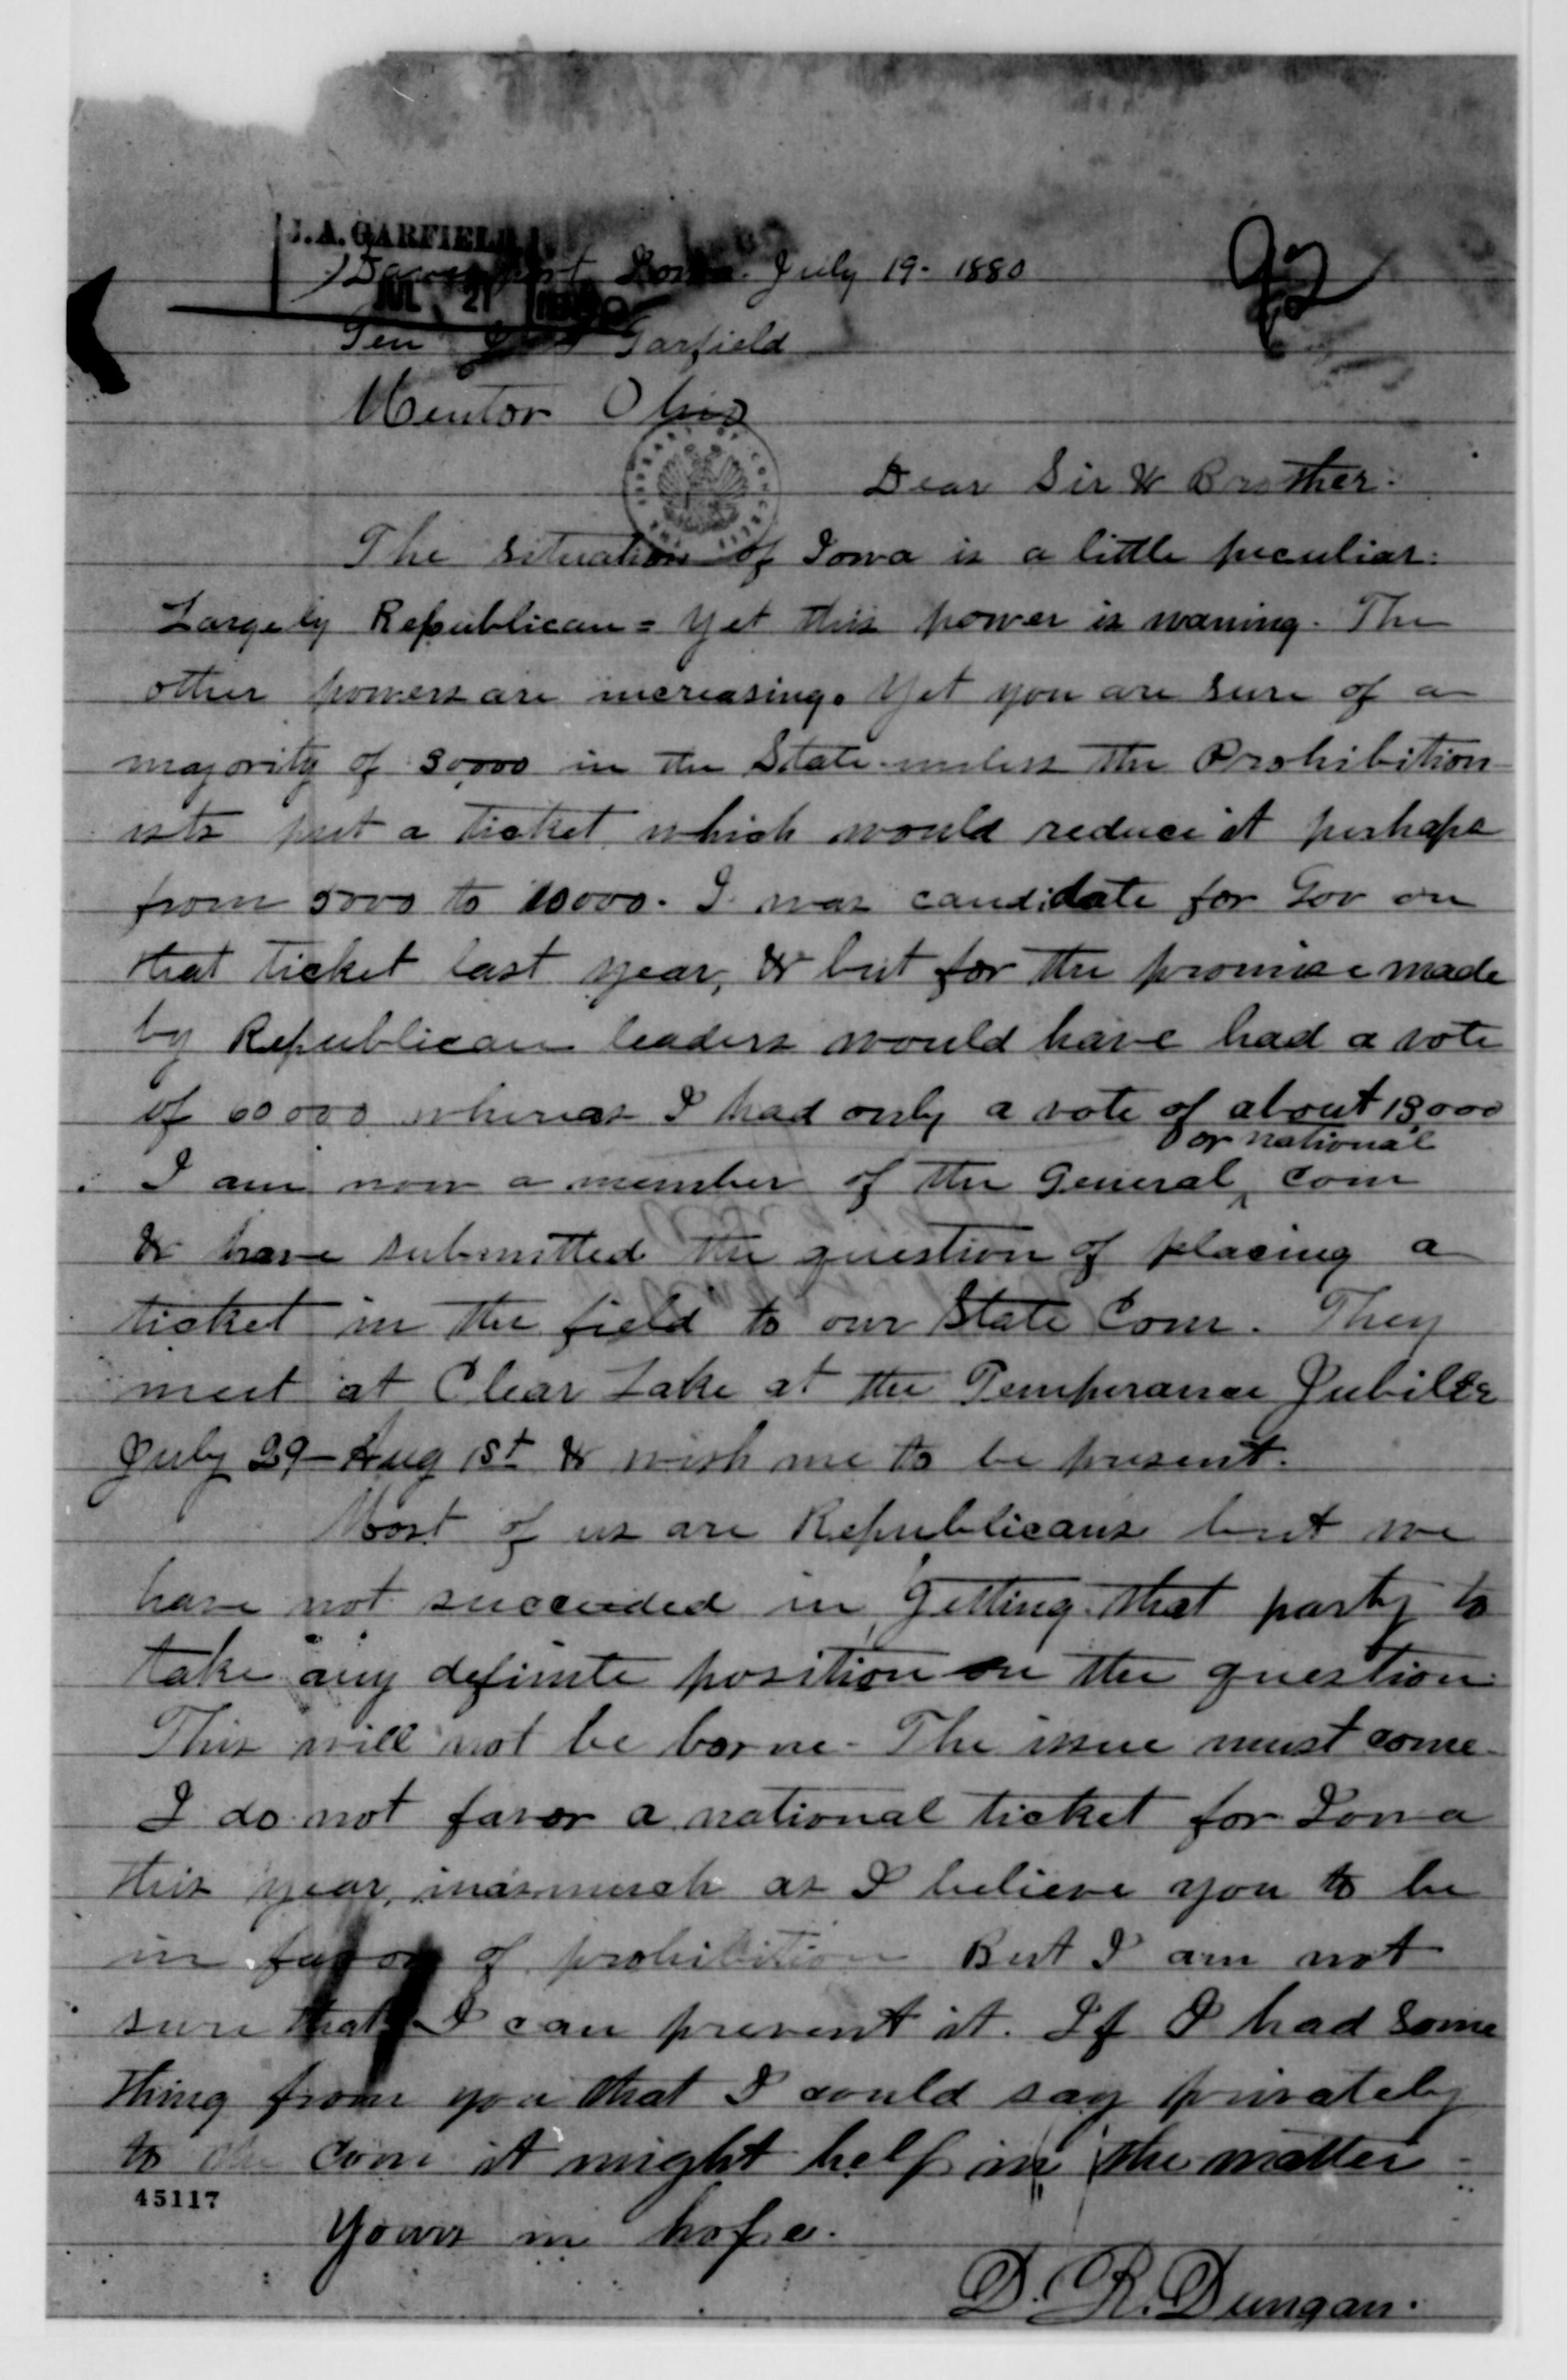 J.A. GARFIELD
Davenport Iowa. July 19- 1880
JUL 21 1880
Gen Garfield
Mentor Ohio
Dear Sir & Brother:
The situation of Iowa is a little peculiar.
Largely Republican = Yet this power is waning. The
other powers are increasing. Yet you are sure of a
majority of 50,000 in the State unless the Prohibition-
ists put a ticket which would reduce it perhaps
from 5000 to 10000. I was candidate for Gov on
that ticket last year, & but for the promise made
by Republican leaders would have had a vote
of 60000 whereas I had only a vote of about 13000
or national
I am now a member of the General ^ Com
& have submitted the question of placing a
ticket in the field to our State Com. They
meet at Clear Lake at the Temperance Jubilee
July 29-Aug 1st & wish me to be present.
Most of us are Republicans but we
have not succeeded in getting that party to
take any definite position on the question.
This will not be borne - The issue must come
I do not favor a national ticket for Iowa
this year, inasmuch as I believe you to be
in favor of prohibition But I am not
sure that I can prevent it. If I had some
thing from you that I could say privately
to the Com it might help in the matter -
45117
Yours in hope.
D. R. Dungan.